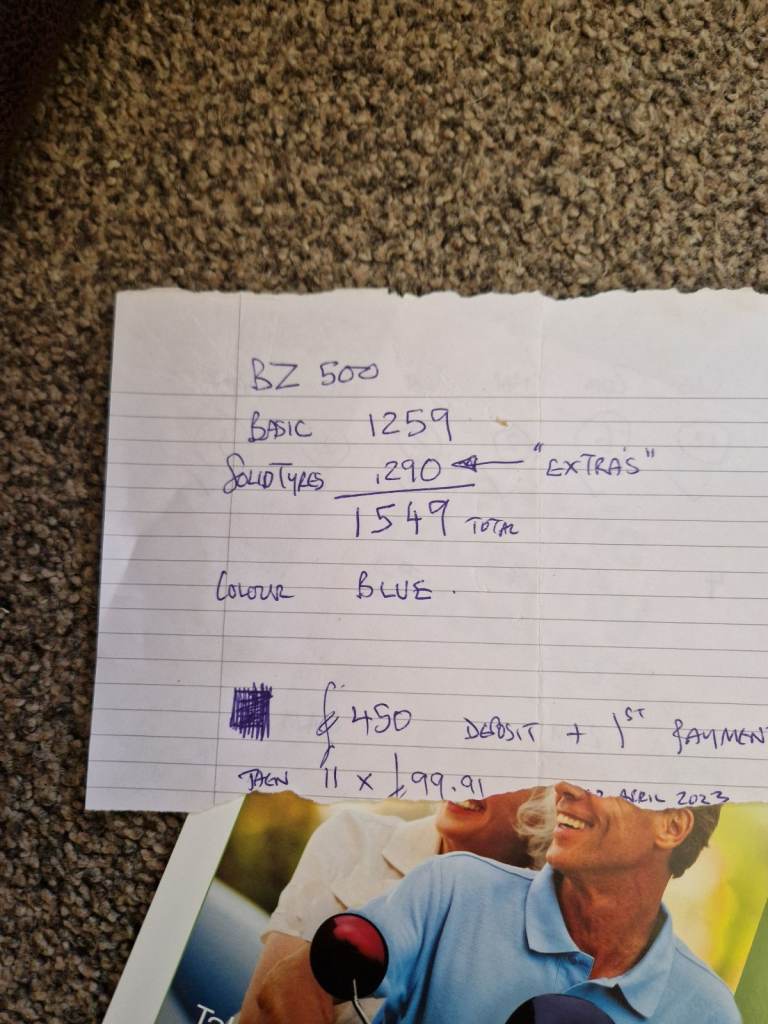 BZ 500
BASIC 1259
SOLID TYRES .290 ← "EXTRA'S"
1549 TOTAL
COLOUR BLUE.
£450 DEPOSIT + 1ST PAYMENT
THEN 11 x £99.91 APRIL 2023